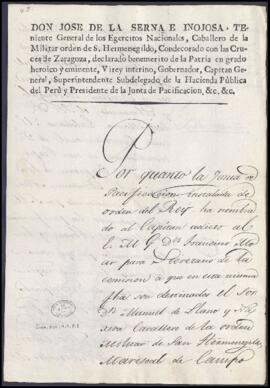 DON JOSÉ DE LA SERNA E INOJOSA, TE-
niente General de los Egercitos Nacionales, Caballero de la
Militar orden de S. Hermenegildo, Condecorado con las Cru-
ces de Zaragoza, declarado benemerito de la Patria en grado
heroico y eminente, Virey interino, Gobernador, Capitan
General, Superintendente Subdelegado de la Hacienda Pública
del Perú y Presidente de la Junta de Pacificacion, &c. &c.
Por quanto la Junta de
Pacificacion instalada de
orden del Rey ha nombra
do al Capitan
al E. M. G. Dn. Francisco
para Secretario de la
comision á que en esta misma
fha van destinados el Sor.
Dn. Manuel de Llano y
Cavallero de la orden
militar de San Hermenegildo
Mariscal de Campo